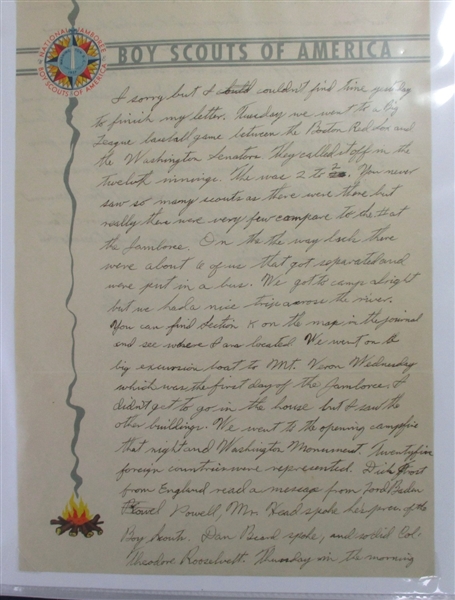 NATIONAL JAMBOREE
BOY SCOUTS OF AMERICA
BOY SCOUTS OF AMERICA
I sorry but I could couldn't find time yesterday
to finish my letter. Tuesday we went to a big
League baseball game between the Boston Red Sox and
the Washington Senators they called it off in the
twelveth innings. The was 2 to 2. You never
saw so many scouts as there were there but
really there were very few compare to the that
the Jamboree. On the the way back there
were about 6 of us that got separated and
were put in a bus. We got to camp alright
but we had a nice trip across the river.
You can find Section K on the map in the journal
and see where I am located We went on a
big excursion boat to Mt. Veron Wednesday
which was the first day of the Jamboree. I
didn't get to go in the house but I saw the
other buildings. We went to the opening campfire
that night and Washington Monument. Twentyfive
foreign countries were represented. Dick
from England read a message from Lord Baden
Powell, Mr. Head spoke he's pres. of the
Boy Scouts. Dan Beard spoke, and so did Col.
Theodore Roosevelt. Thursday in the morning